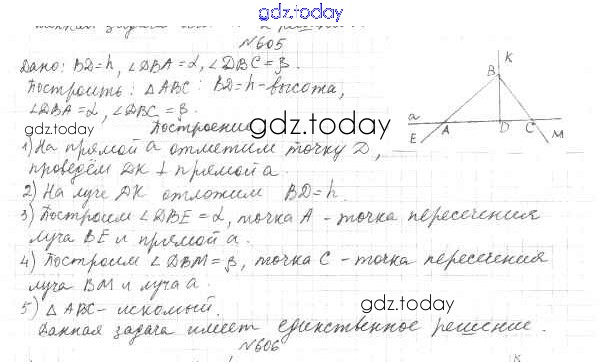 gdz.today
№605
Дано: BD=h, ∠DBA=α, ∠DBC=β.
Построить: △ABC: BD=h-высота,
∠DBA=α, ∠DBC=β.
gdz.today
gdz.today
Построение
1) На прямой a отметим точку D,
проведём DK ⊥ прямой a.
2) На луче DK отложим BD=h.
3) Построим ∠DBE=α, точка A - точка пересечения
луча BE и прямой a.
4) Построим ∠DBM=β, точка C - точка пересечения
луча BM и луча a.
5) △ABC- искомый.
gdz.today
Данная задача имеет единственное решение.
№606
K
B
a
E
A
D
C
M